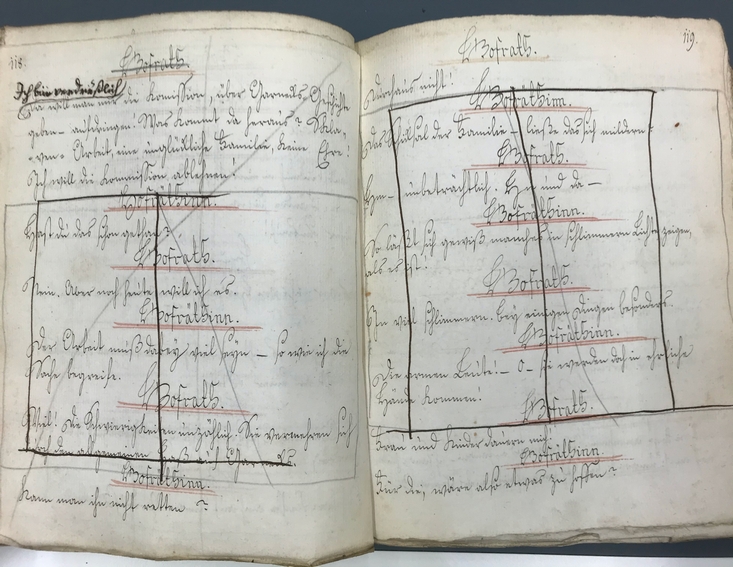 118.
Hofrath.
Ich bin verdrüßlich
Da will man mir die Komission, über Garnecks Geschichte
geben – aufdringen! Was kommt da heraus? Skla,
ven- Arbeit, eine unglükliche Familie, keine Ehre!
Ich will die Kommission ablehnen!
Hofräthinn.
Hast du das schon gethan?
Hofrath.
Nein. Aber noch heute will ich es.
Hofräthinn.
Der Arbeit muß dabey viel seyn – so wie ich die
Sache begreife.
Hofrath.
Viel! die Schwierigkeiten unzählich. Sie vermehren sich
durch den allgemeinen Haß auf
Hofräthinn.
Kann man ihn nicht retten?
119.
Hofrath.
Durchaus nicht!
Hofräthinn.
Das Schiksal der Familie – ließe das sich mildern?
Hofrath.
Hm – unbeträchtlich. Hie und da –
Hofräthinn.
So läßt sich gewiß manches in schlimmern Lichte zeigen,
als es ist.
Hofrath.
In viel schlimmern. bey einigen Dingen besonders.
Hofräthinn.
Die armen Leute! – O – sie werden doch in ehrliche
Hände kommen!
Hofrath.
Frau und Kinder dauern mich.
Hofräthinn
Für die, wäre also etwas zu hoffen?